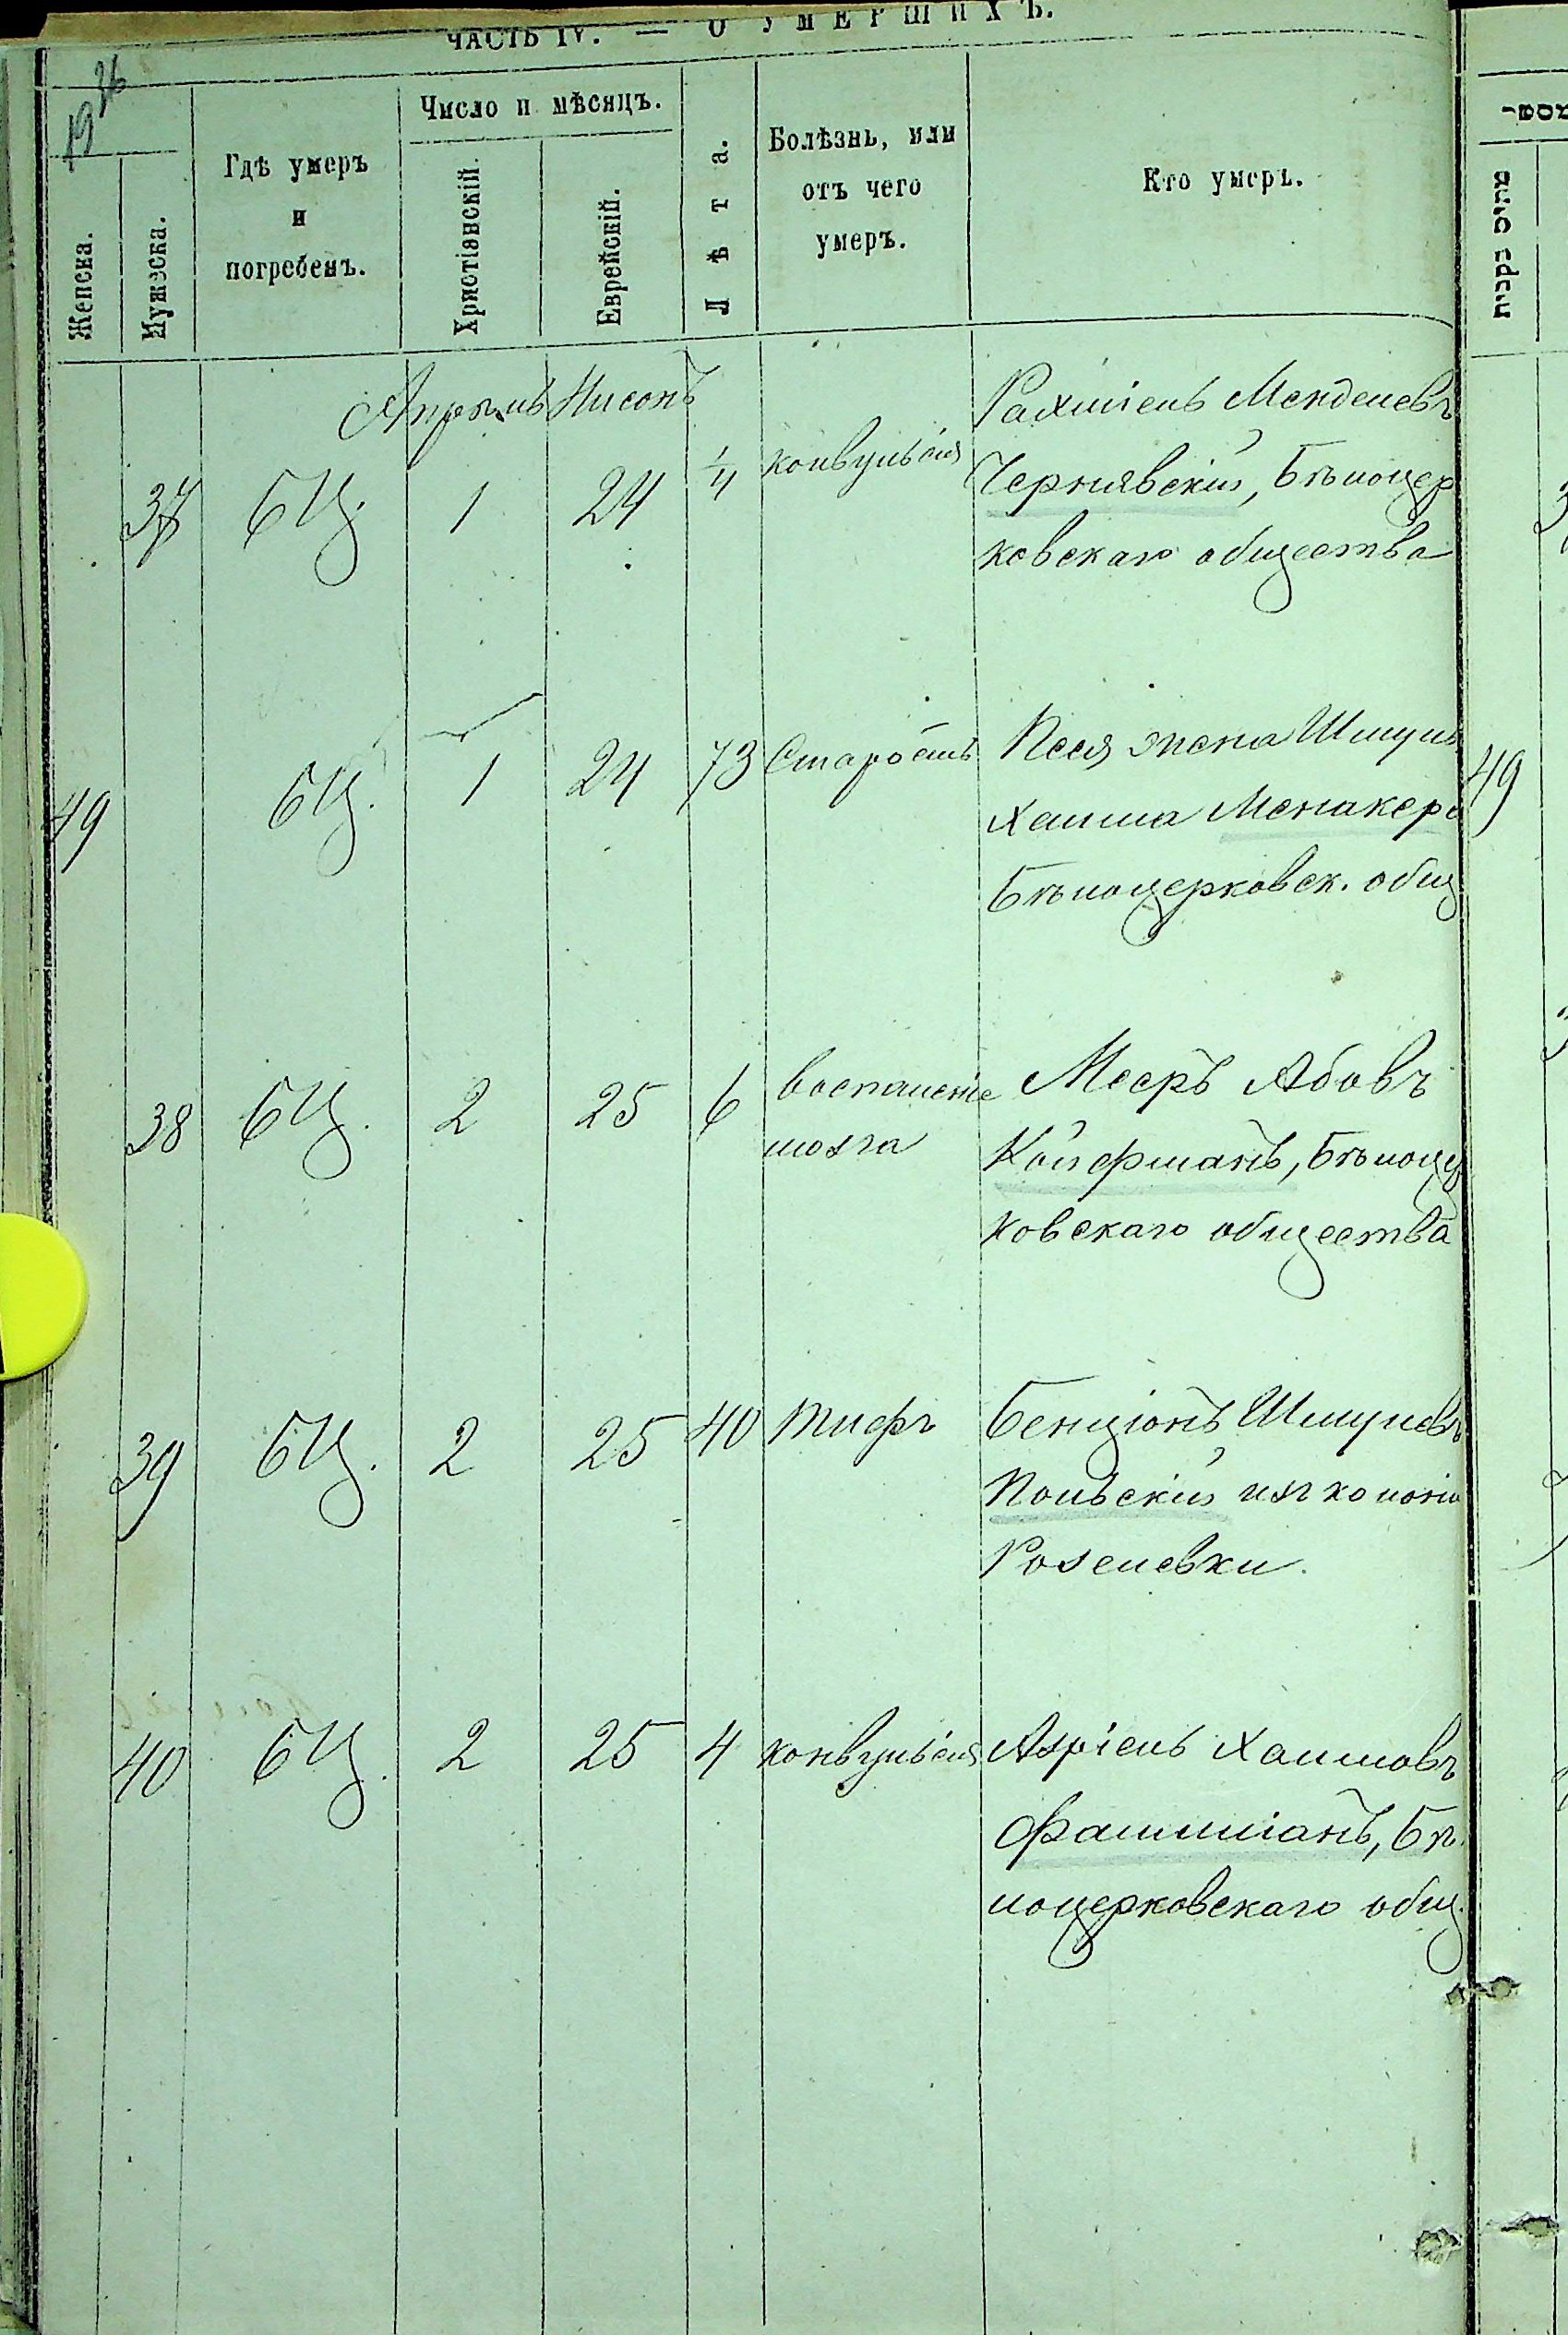 ЧАСТЬ IV. — О УМЕРШИХЪ.
19 26
Женска.
Мужеска.
Гдѣ умеръ
и
погребенъ.
Число и мѣсяцъ.
Христіанскій.
Еврейскій.
Лѣта.
Болѣзнь, или
отъ чего
умеръ.
Кто умеръ.
Апрѣль Нисонъ
37 БЦ. 1 24 1/4 конвульсія Рахміель Менделевъ
Чернявскій, Бѣлоцер
ковскаго общества
49 БЦ. 1 24 73 Старость Песя жена Шмуль
Хаима Менакера
Бѣлоцерковск. общ
38 БЦ. 2 25 6 воспаленіе Мееръ Абовъ
мозга Койфманъ, Бѣлоцер
ковскаго общества
39 БЦ. 2 25 40 тифъ Бенціонъ Шмулевъ
Польскій изъ колоніи
Розелевки.
40 БЦ. 2 25 4 конвульсія Азріель Хаимовъ
Фаинманъ, Бѣ
лоцерковскаго общ.
49